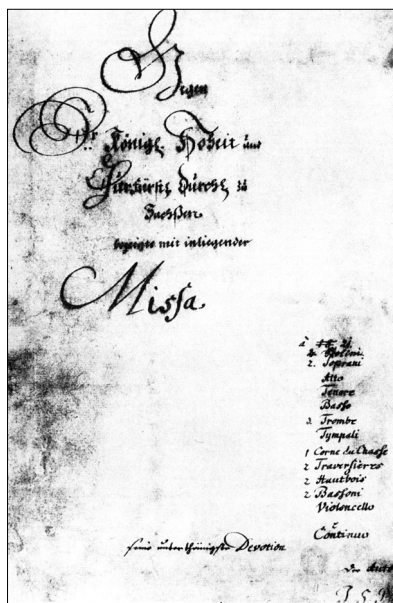 Gegen
Sr. Königl. Hoheit und
Churfürstl. Durchl. zu
Sachßen
bezeigte mit inliegender
Missa
à
2. Soprani
Alto
Tenore
Basso
3 Trombe
Tympali
1 Corne du Chasse
2 Traversieres
2 Hautbois
2 Bassoni
Violoncello
e
Continuo
seine unterthänigste Devotion
der Auto
J S B